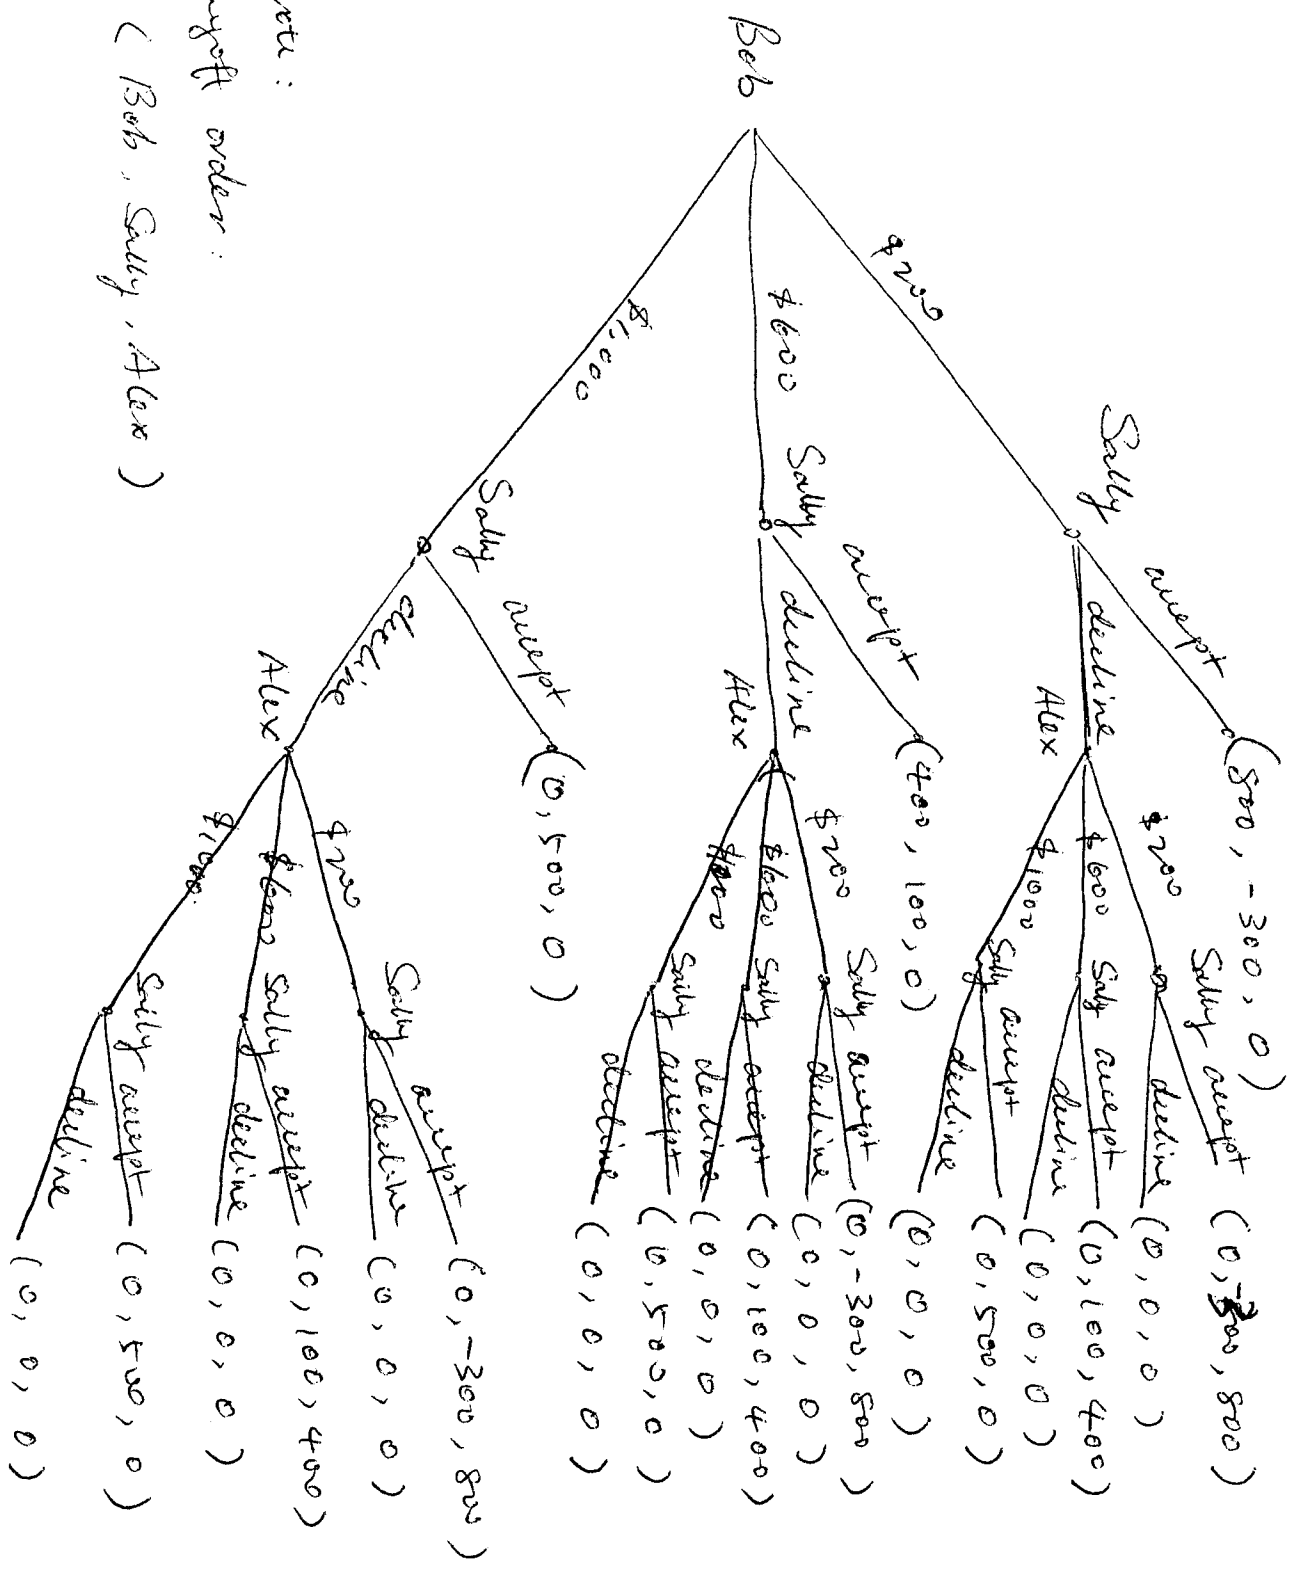 Bob
$200
$600
$1,000
Sally
accept
(800, -300, 0)
decline
Alex
$200
Sally accept (0, -300, 800)
decline (0, 0, 0)
$600
Sally accept (0, 100, 400)
decline (0, 0, 0)
$1000
Sally accept (0, 500, 0)
decline (0, 0, 0)
Sally
accept
(400, 100, 0)
decline
Alex
$200
Sally accept (0, -300, 800)
decline (0, 0, 0)
$600
Sally accept (0, 100, 400)
decline (0, 0, 0)
Sally accept (0, 500, 0)
decline (0, 0, 0)
Sally
accept
(0, 500, 0)
decline
Alex
$200
Sally
accept (0, -300, 800)
decline (0, 0, 0)
$600
Sally accept (0, 100, 400)
decline (0, 0, 0)
$1000.
Sally accept (0, 500, 0)
decline (0, 0, 0)
ote:
ayoff order:
(Bob, Sally, Alex)